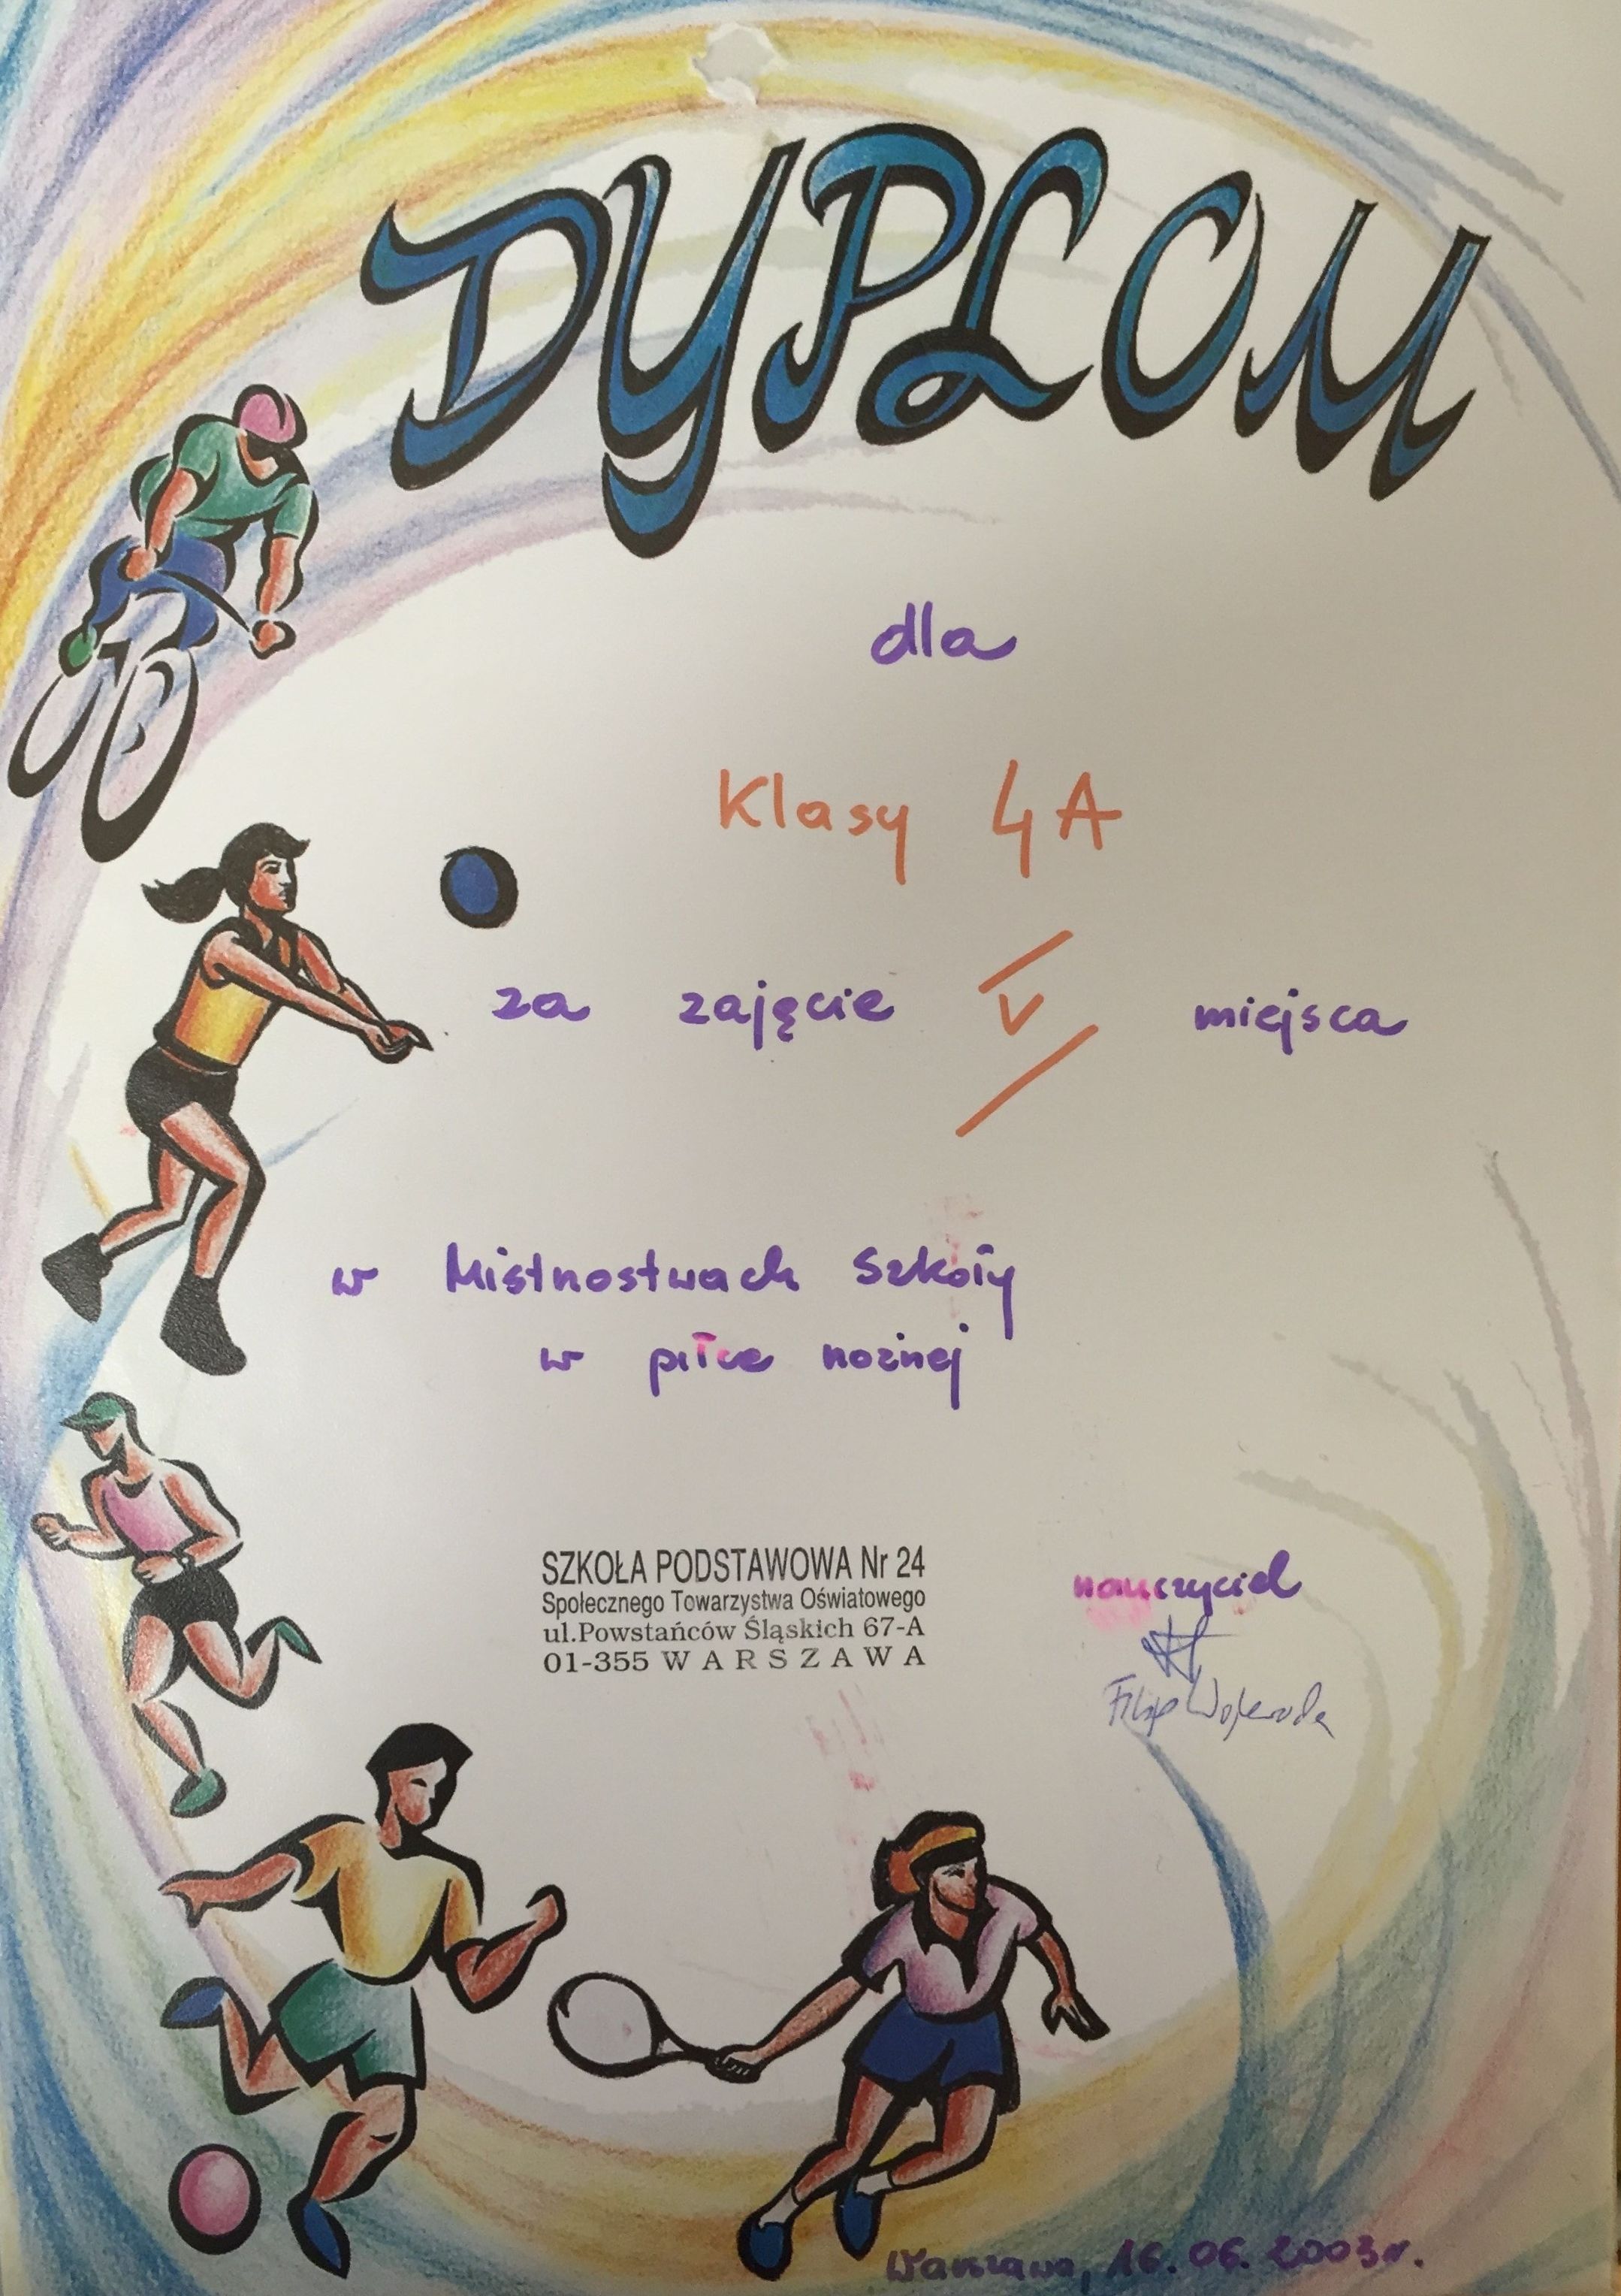 DYPLOM
dla
Klasy 4A
za zajęcie V miejsca
w Mistrzostwach Szkoły
w piłce nożnej
SZKOŁA PODSTAWOWA Nr 24
Społecznego Towarzystwa Oświatowego
ul.Powstańców Śląskich 67-A
01-355 WARSZAWA
nauczyciel
Filip
Warszawa, 16.06.2003r.